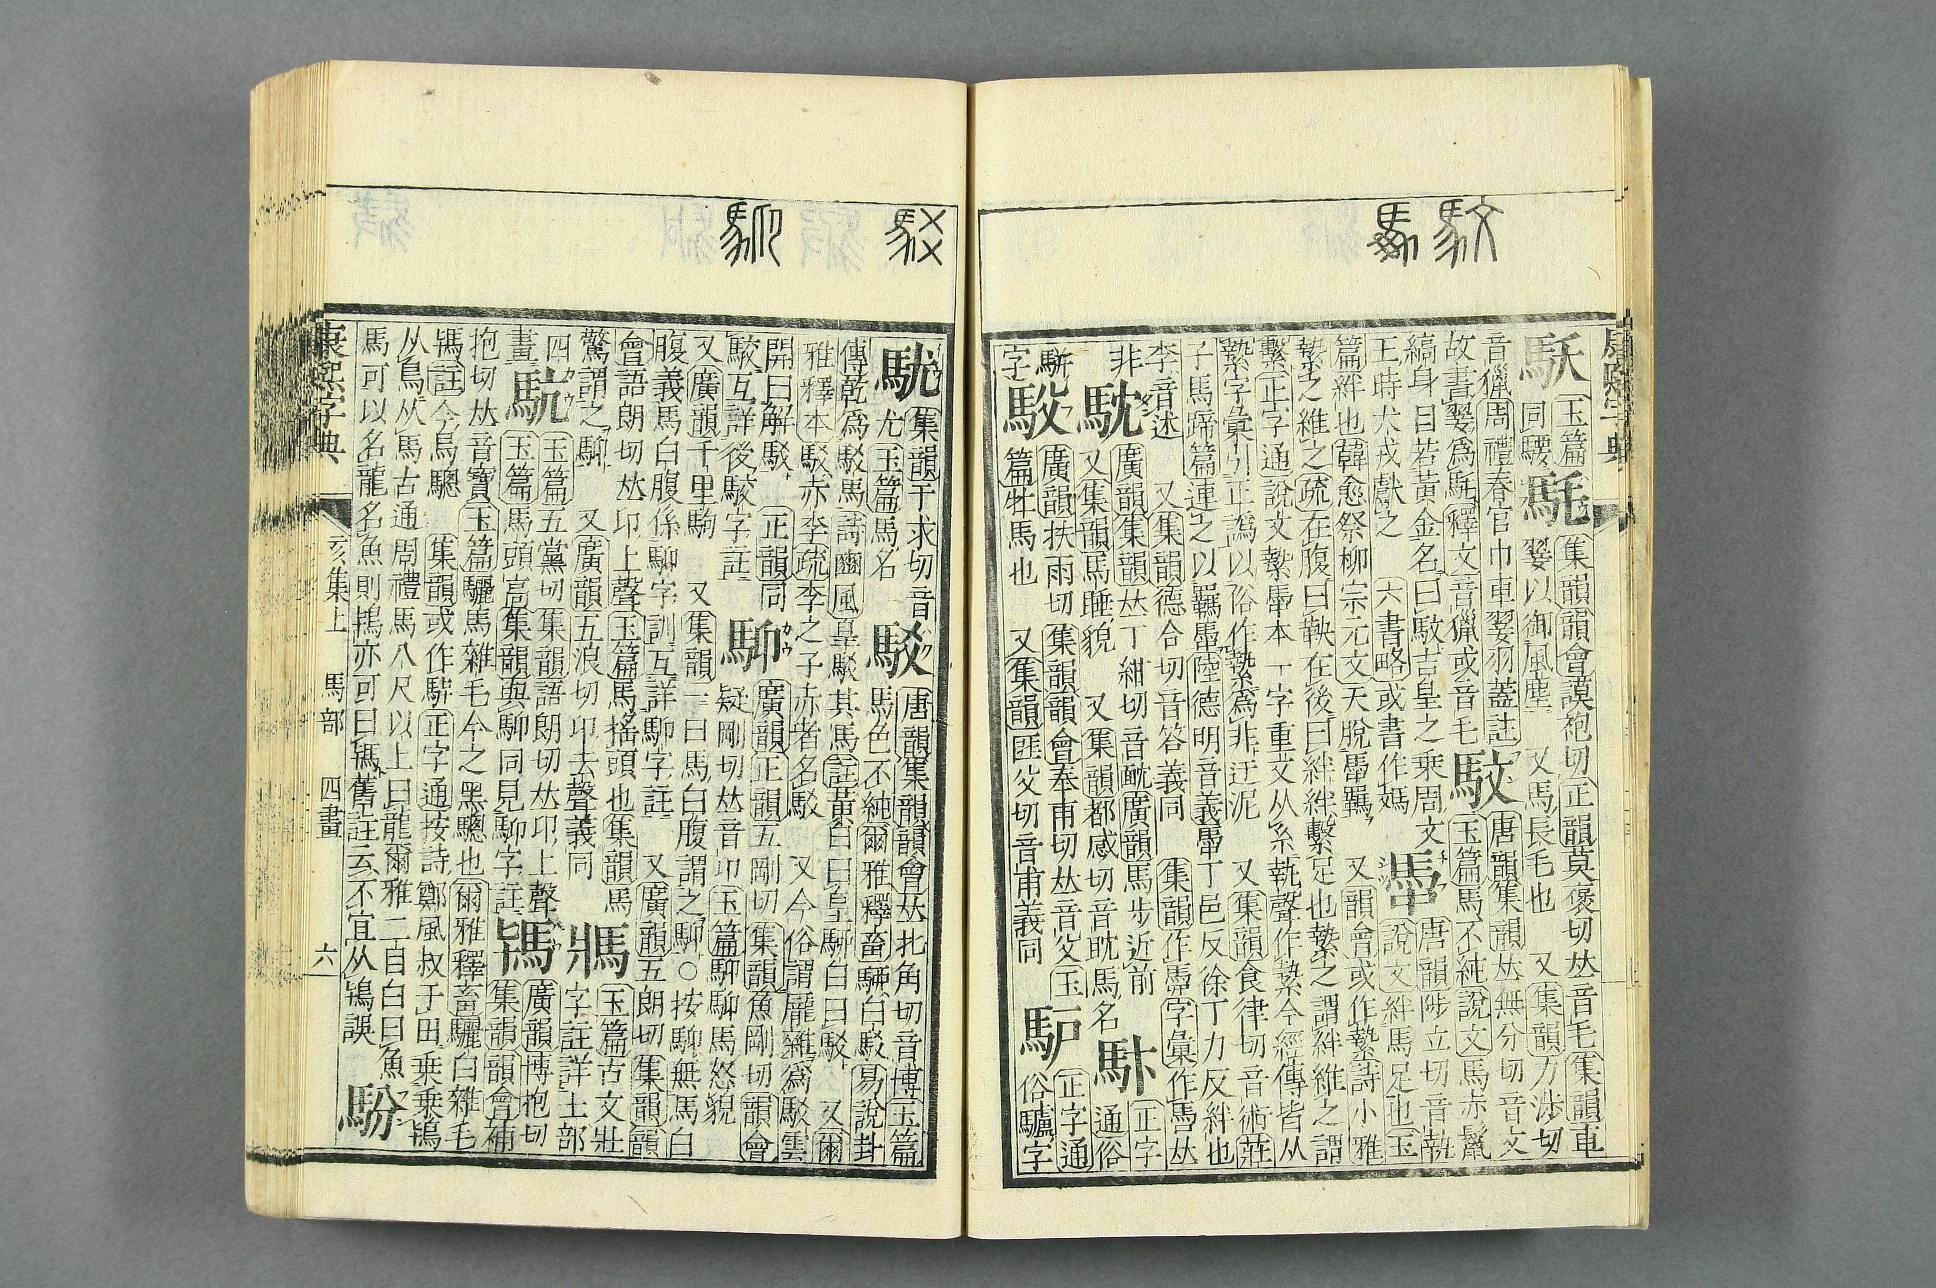 康熙字典
馼
馽
玉篇
同騕
集韻韻會謨袍切正韻莫襃切𠀤音毛集韻車
翣以御風塵 又馬長毛也 又集韻力涉切
音獵周禮春官巾車翣羽蓋註
故書翣爲䭷釋文音獵或音毛
馼
唐韻集韻𠀤無分切音文
玉篇馬不純說文馬赤鬣
縞身目若黃金名曰馼吉皇之乘周文
王時犬戎獻之 六書略或書作媽
馽
唐韻陟立切音縶
說文絆馬足也玉
篇絆也韓愈祭柳宗元文天脫馽羈 又韻會或作縶詩小雅
縶之維之疏在腹曰鞅在後曰絆絆繫足也縶之謂絆維之謂
繫正字通說文縶馽本一字重文从糸執聲作縶今經傳皆从
縶字彙引正譌以俗作縶爲非迂泥 又集韻食律切音術莊
子馬蹄篇連之以羈馽陸德明音義馽丁邑反徐丁力反絆也
李音述 又集韻德合切音答義同 集韻作馵字彙作馬𠀤
非
廣韻集韻𠀤丁紺切音 廣韻馬步近前
又集韻馬睡貌 又集韻都感切音眈馬名
正字
通俗
騈
字
廣韻扶雨切集韻韻會奉甫切𠀤音父玉
篇牡馬也 又集韻匪父切音甫義同
馿
正字通
俗驢字
駁
集韻于求切音
尤玉篇馬名
駁
唐韻集韻韻會𠀤北角切音博玉篇
馬色不純爾雅釋畜駵白駁易說卦
傳乾爲駁馬詩豳風皇駁其馬註黃白曰皇駵白曰駁 又爾
雅釋木駁赤李疏李之子赤者名駁 又今俗謂龐雜爲駁雲
開曰解駁 正韻同
駮互詳後駮字註
䭹
廣韻正韻五剛切集韻魚剛切韻會
疑剛切𠀤音卬玉篇䭹䭹馬怒貌
又廣韻千里駒 又集韻一曰馬白腹謂之䭹○按䭹無馬白
腹義馬白腹係 字訓互詳 字註 又廣韻五朗切集韻韻
會語朗切𠀤卬上聲玉篇馬搖頭也集韻馬
驚謂之䭹 又廣韻五浪切卬去聲義同
玉篇古文壯
字註詳士部
四
畫
玉篇五黨切集韻語朗切𠀤卬上聲
玉篇馬頭高集韻與䭹同見䭹字註
廣韻博抱切
集韻韻會補
抱切𠀤音寶玉篇驪馬雜毛今之黑驄也爾雅釋畜驪白雜毛
鴇註今烏驄 集韻或作駂正字通按詩鄭風叔于田乘乘鴇
从鳥从馬古通周禮馬八尺以上曰龍爾雅二目白曰魚
馬可以名龍名魚則鴇亦可曰 舊註云不宜从鴇誤
馚
康熙字典
亥集上 馬部 四畫 六